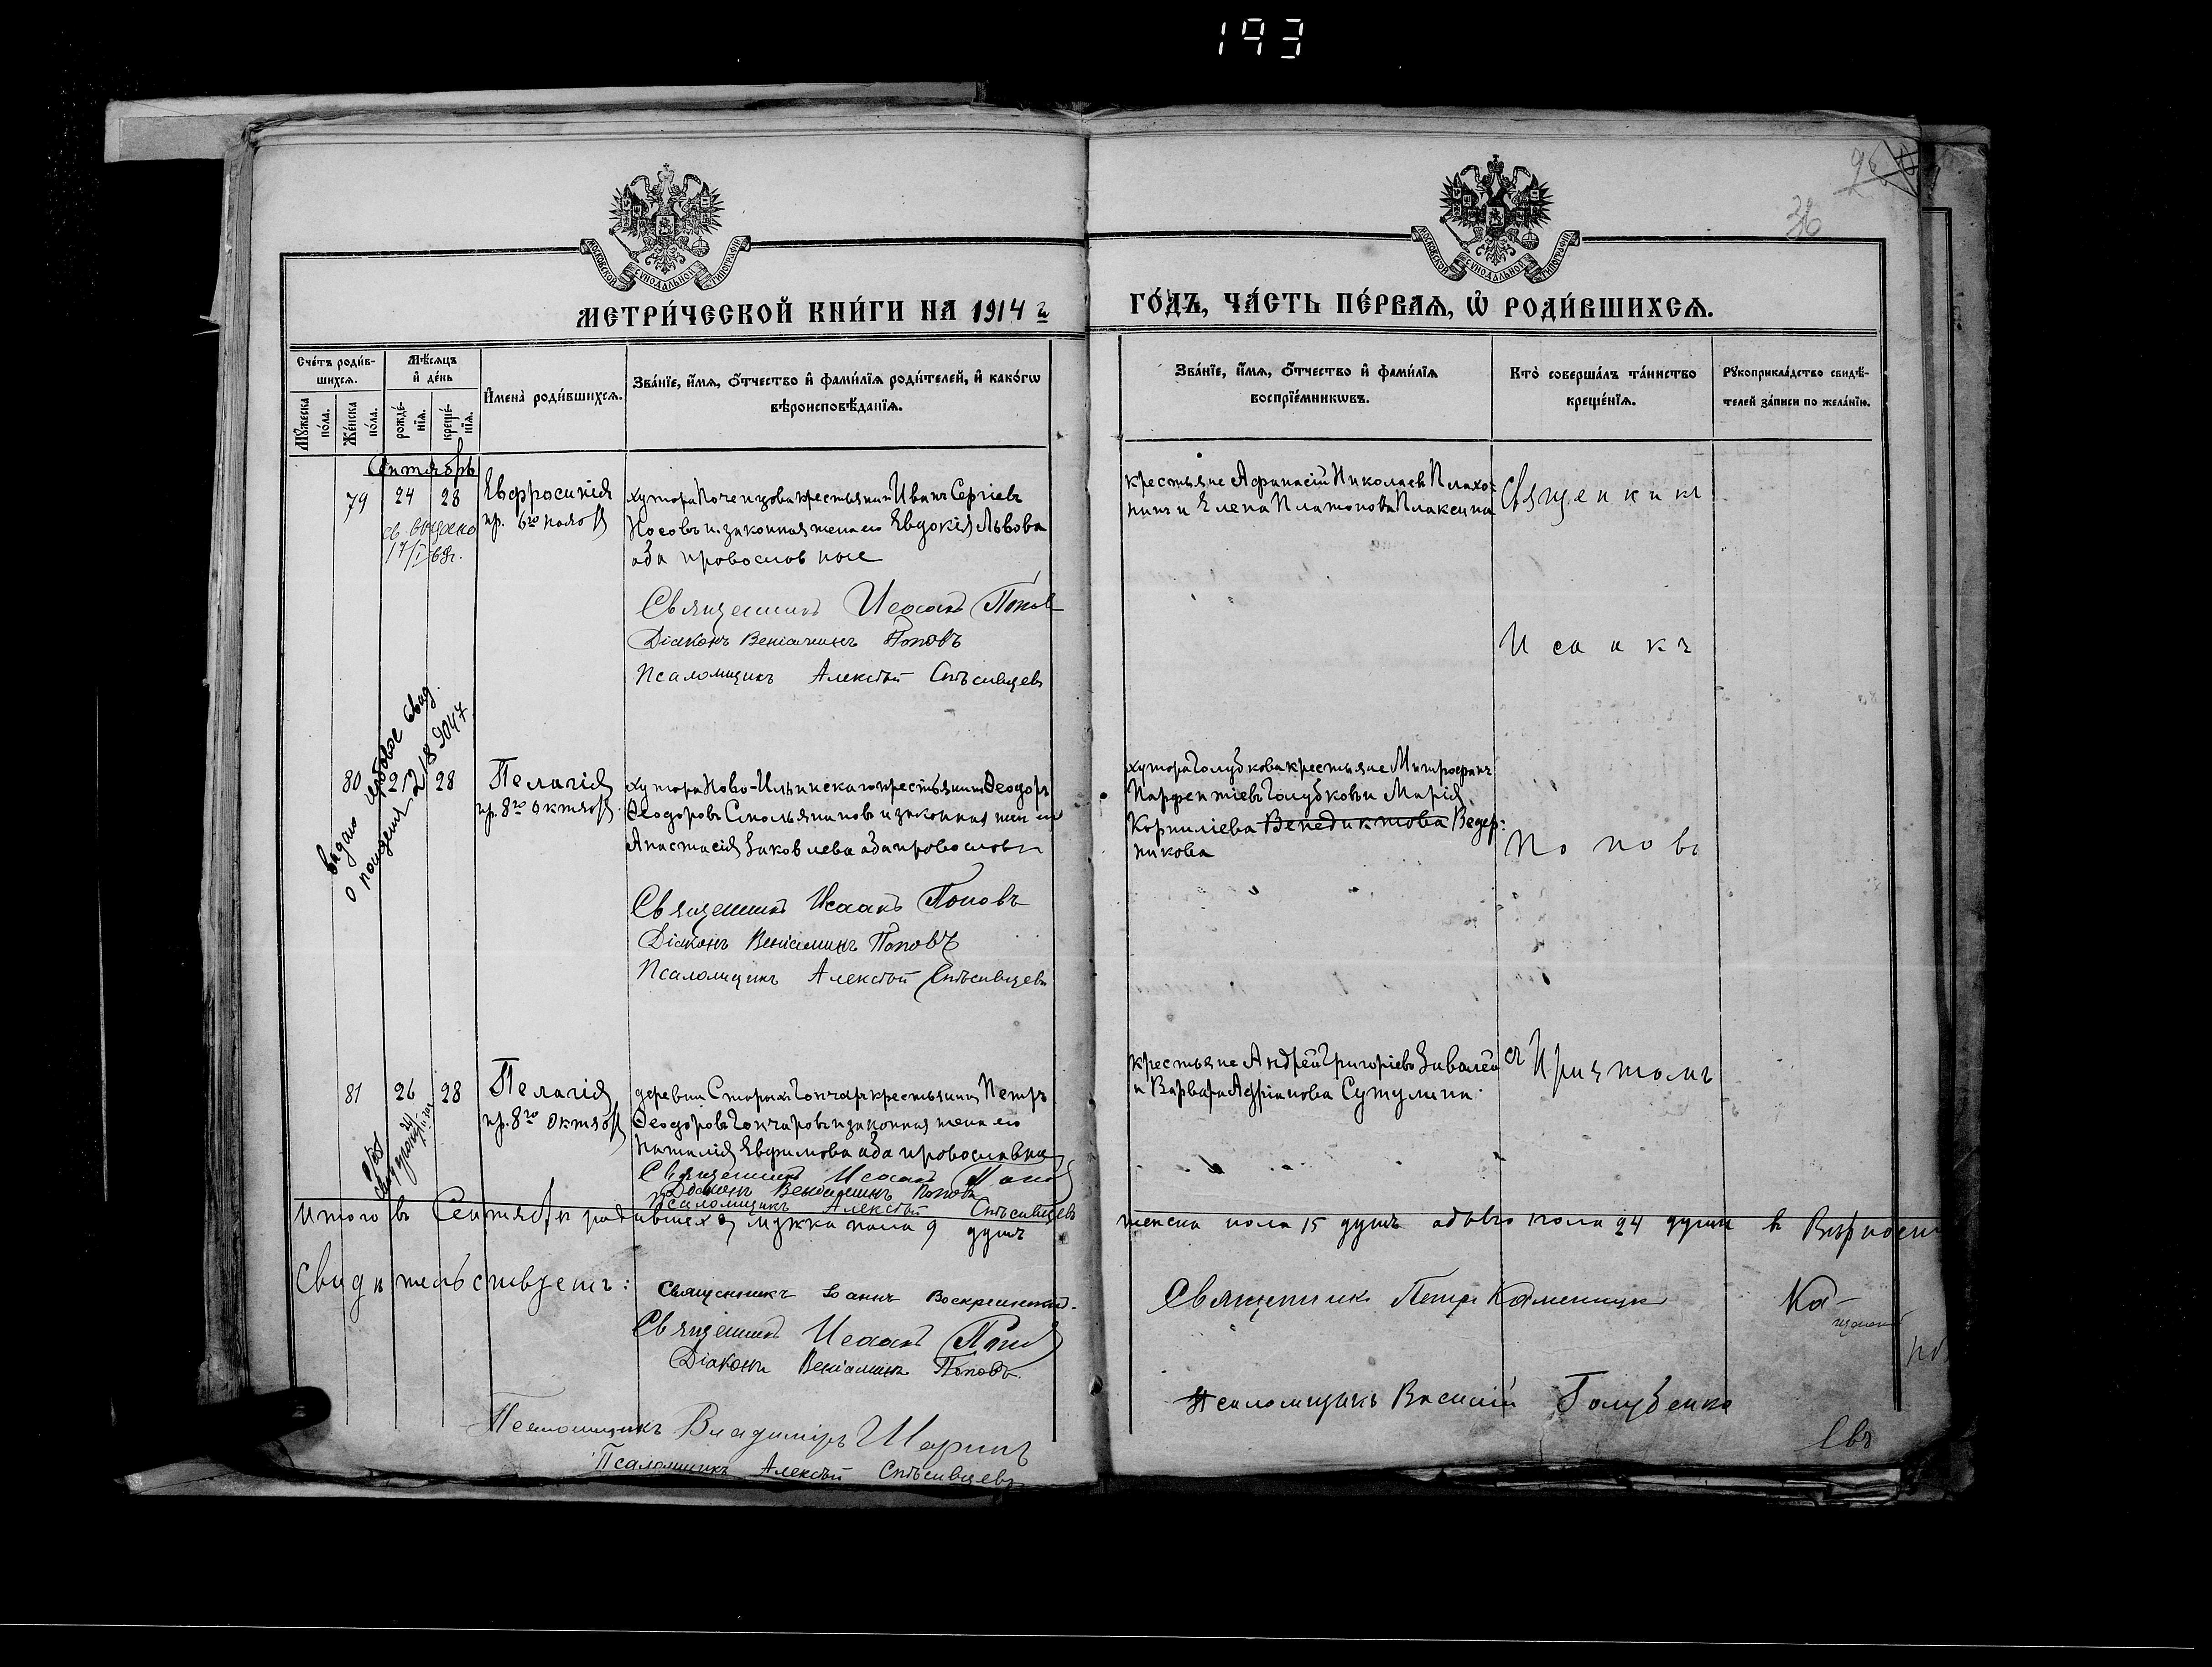 193
36
МОСКОВСКОЙ СѴНОДАЛЬНОЙ ТИПОГРАФІИ
МОСКОВСКОЙ СѴНОДАЛЬНОЙ ТИПОГРАФІИ
МЕТРИ́ЧЕСКОЙ КНИ́ГИ НА 1914 й
ГО́ДЪ, ЧА́СТЬ ПЕ́РВАЯ, Ѡ РОДИ́ВШИХСЯ.
Сче́тъ роди́в-
шихся.
Мѣ́сяцъ
и҆ де́нь
Мꙋ́жеска по́ла.
Же́нска по́ла.
рожде́-
нїя.
креще́-
нїя.
И҆мена̀ роди́вшихся.
Зва́нїе, и҆́мя, ѻ҆́тчество и҆ фами́лїя роди́телей, и҆ како́гѡ
вѣроисповѣ́данїя.
Зва́нїе, и҆́мя, ѻ҆́тчество и҆ фами́лїя
воспрїе́мникѡвъ.
Кто̀ соверша́лъ та́инство
креще́нїя.
Рꙋкоприкла́дство свидѣ́-
телей за́писи по жела́нїю.
Сентябрь
79 24 28 Евфросинія
пр. 6го ноября
17/I
хутора крестьянинъ Иванъ Сергіевъ
Носовъ и законная жена его Евдокія Львова
оба православные
Священникъ Исаакъ Поповъ
Діаконъ Веніаминъ Поповъ
Псаломщикъ Алексѣй Спѣсивцевъ
крестьяне Афанасій Николаевъ Плахо-
тинъ и Елена Платонова Плаксина
Священникъ
Исаакъ
выдано свид.
о рожденіи
80 28 Пелагія
пр. 8го октября
хутора Ново-Ильинскаго крестьянинъ Ѳеодоръ
Ѳеодоровъ Смольяниновъ и законная жена его
Анастасія Яковлева оба православн
Священникъ Исаакъ Поповъ
Діаконъ Веніаминъ Поповъ
Псаломщикъ Алексѣй Спѣсивцевъ
хутора Голубкова крестьяне Митрофанъ
Парфентіевъ Голубковъ и Марія
Корниліева Венедиктова Ведер-
никова
Поповъ
81 26 28 Пелагія
пр. 8го октября
деревни Старыхъ Гончаръ крестьянинъ Петръ
Ѳеодоровъ Гончаровъ и законная жена его
Наталія Евфимова оба православны
Священникъ Исаакъ Поповъ
Діаконъ Веніаминъ Поповъ
Псаломщикъ Алексѣй Спѣсивцевъ
крестьяне Андрей Григоріевъ
и Варвара Адріанова Сутулина
съ Причтомъ
Итого въ Сентябрѣ родившихся мужска пола 9 душъ
женска пола 15 душъ обоего пола 24 души
Свидѣтельствуетъ:
Священникъ Іоаннъ Воскресенскій
Священникъ Исаакъ Поповъ
Діаконъ Веніаминъ Поповъ
Псаломщикъ Владиміръ
Псаломщикъ Алексѣй Спѣсивцевъ
Священникъ Петръ
Псаломщикъ Василій Голубенко